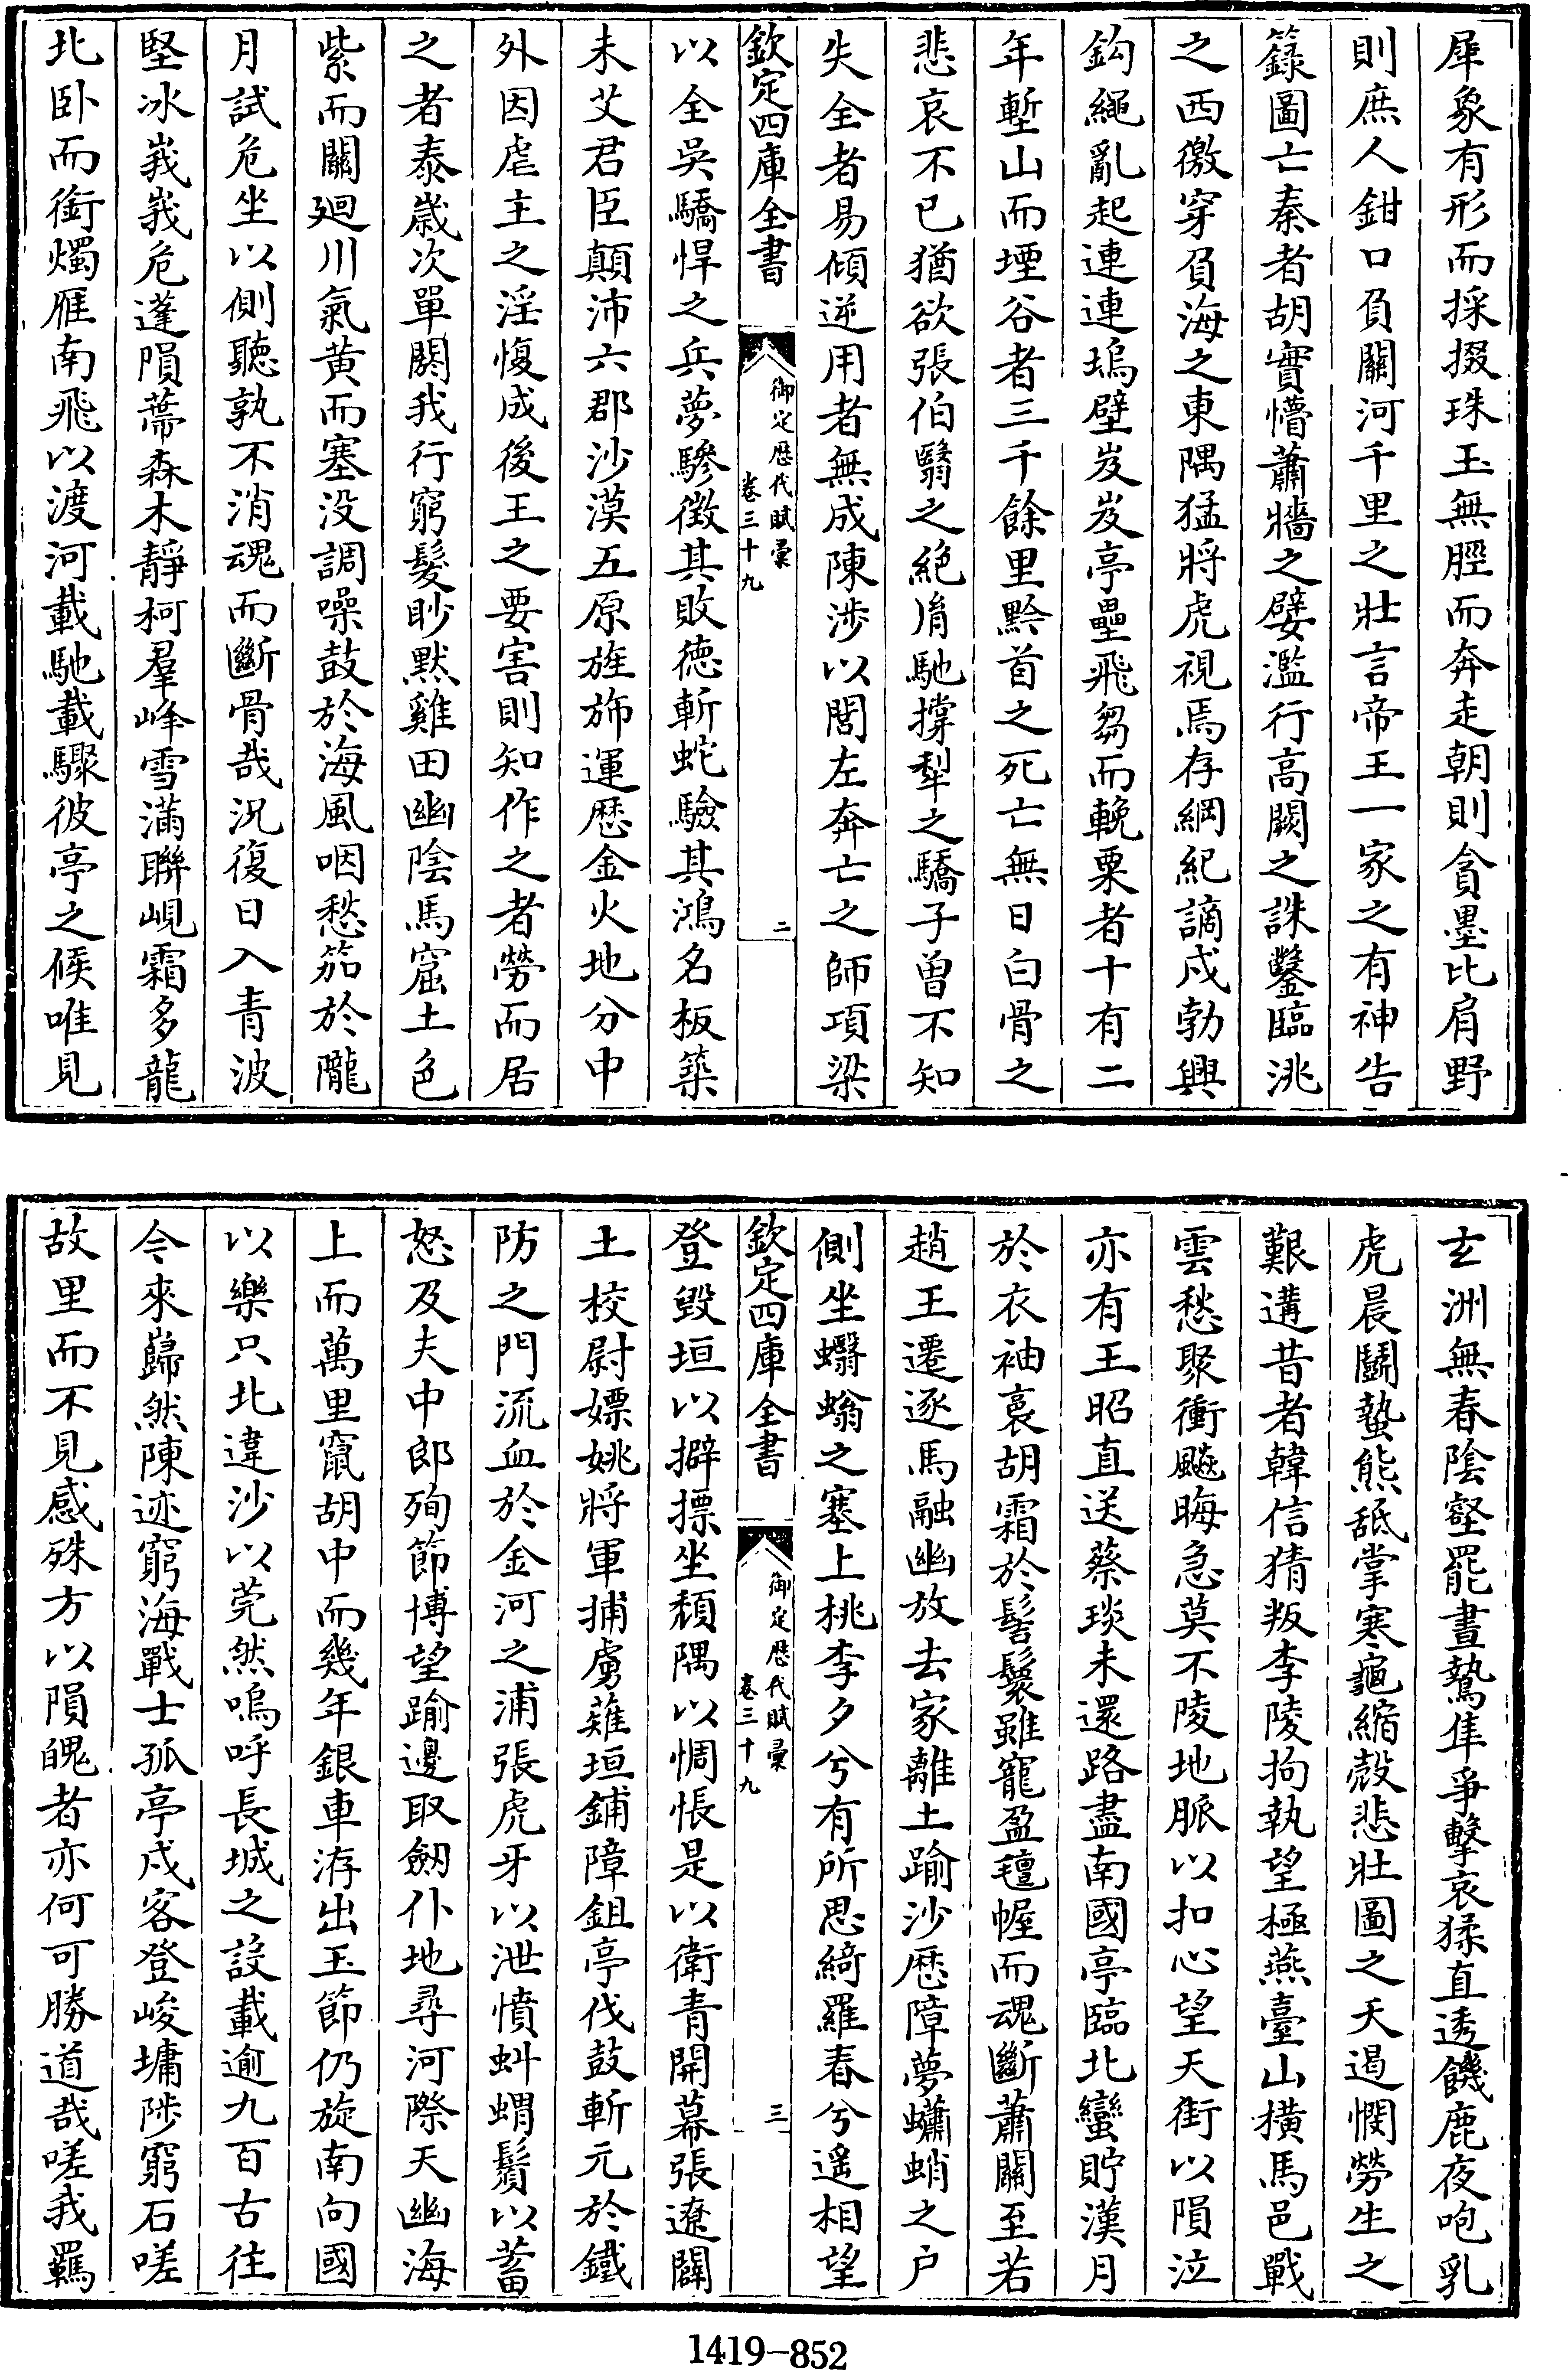 犀象有形而採掇珠玉無脛而奔走朝則貪墨比肩野
則庶人鉗口負關河千里之壯言帝王一家之有神告
籙圖亡秦者胡實懵蕭牆之孽濫行高闕之誅鑿臨洮
之西徼穿負海之東隅猛將虎視焉存綱紀謫戍勃興
鈎繩亂起連連塢壁岌岌亭壘飛芻而輓粟者十有二
年塹山而堙谷者三千餘里黔首之死亡無日白骨之
悲哀不已猶欲張伯翳之絶胤馳撐犁之驕子曽不知
失全者易傾逆用者無成陳涉以閭左奔亡之師項梁
欽定四庫全書
御定歴代賦彙
卷三十九
二
以全吳驕悍之兵夢驂徵其敗徳斬蛇驗其鴻名板築
未艾君臣顛沛六郡沙漠五原旌斾運歴金火地分中
外因虐主之淫愎成後王之要害則知作之者勞而居
之者泰嵗次單閼我行窮髮眇黙雞田幽陰馬窟土色
紫而關廻川氣黄而塞没調噪鼓於海風咽愁笳於隴
月試危坐以側聽孰不消魂而斷骨哉況復日入青波
堅冰峩峩危蓬隕蔕森木靜柯羣峰雪滿聯峴霜多龍
北卧而銜燭雁南飛以渡河載馳載驟彼亭之候唯見
玄洲無春陰壑罷晝鷙隼爭擊哀猱直透饑鹿夜咆乳
虎晨鬭蟄熊舐掌寒龜縮殼悲壯圖之夭遏憫勞生之
艱遘昔者韓信猜叛李陵拘執望極燕臺山横馬邑戰
雲愁聚衝飇晦急莫不陵地脈以扣心望天街以隕泣
亦有王昭直送蔡琰未還路盡南國亭臨北蠻貯漢月
於衣袖裛胡霜於髻鬟雖寵盈氊幄而魂斷蕭關至若
趙王遷逐馬融幽放去家離土踰沙歴障夢蠨蛸之户
側坐蠮螉之塞上桃李夕兮有所思綺羅春兮遥相望
欽定四庫全書
御定歴代賦彙
卷三十九
三
登毀垣以擗摽坐頽隅以惆悵是以衛青開幕張遼闢
土校尉嫖姚將軍捕虜薙垣鋪障鉏亭伐鼓斬元於鐵
防之門流血於金河之浦張虎牙以泄憤蚪蝟鬚以蓄
怒及夫中郎殉節博望踰邊取劒仆地尋河際天幽海
上而萬里竄胡中而幾年銀車洊出玉節仍旋南向國
以樂只北違沙以莞然嗚呼長城之設載逾九百古往
今來巋然陳迹窮海戰士孤亭戍客登峻墉陟窮石嗟
故里而不見感殊方以隕魄者亦何可勝道哉嗟我羈
1419-852